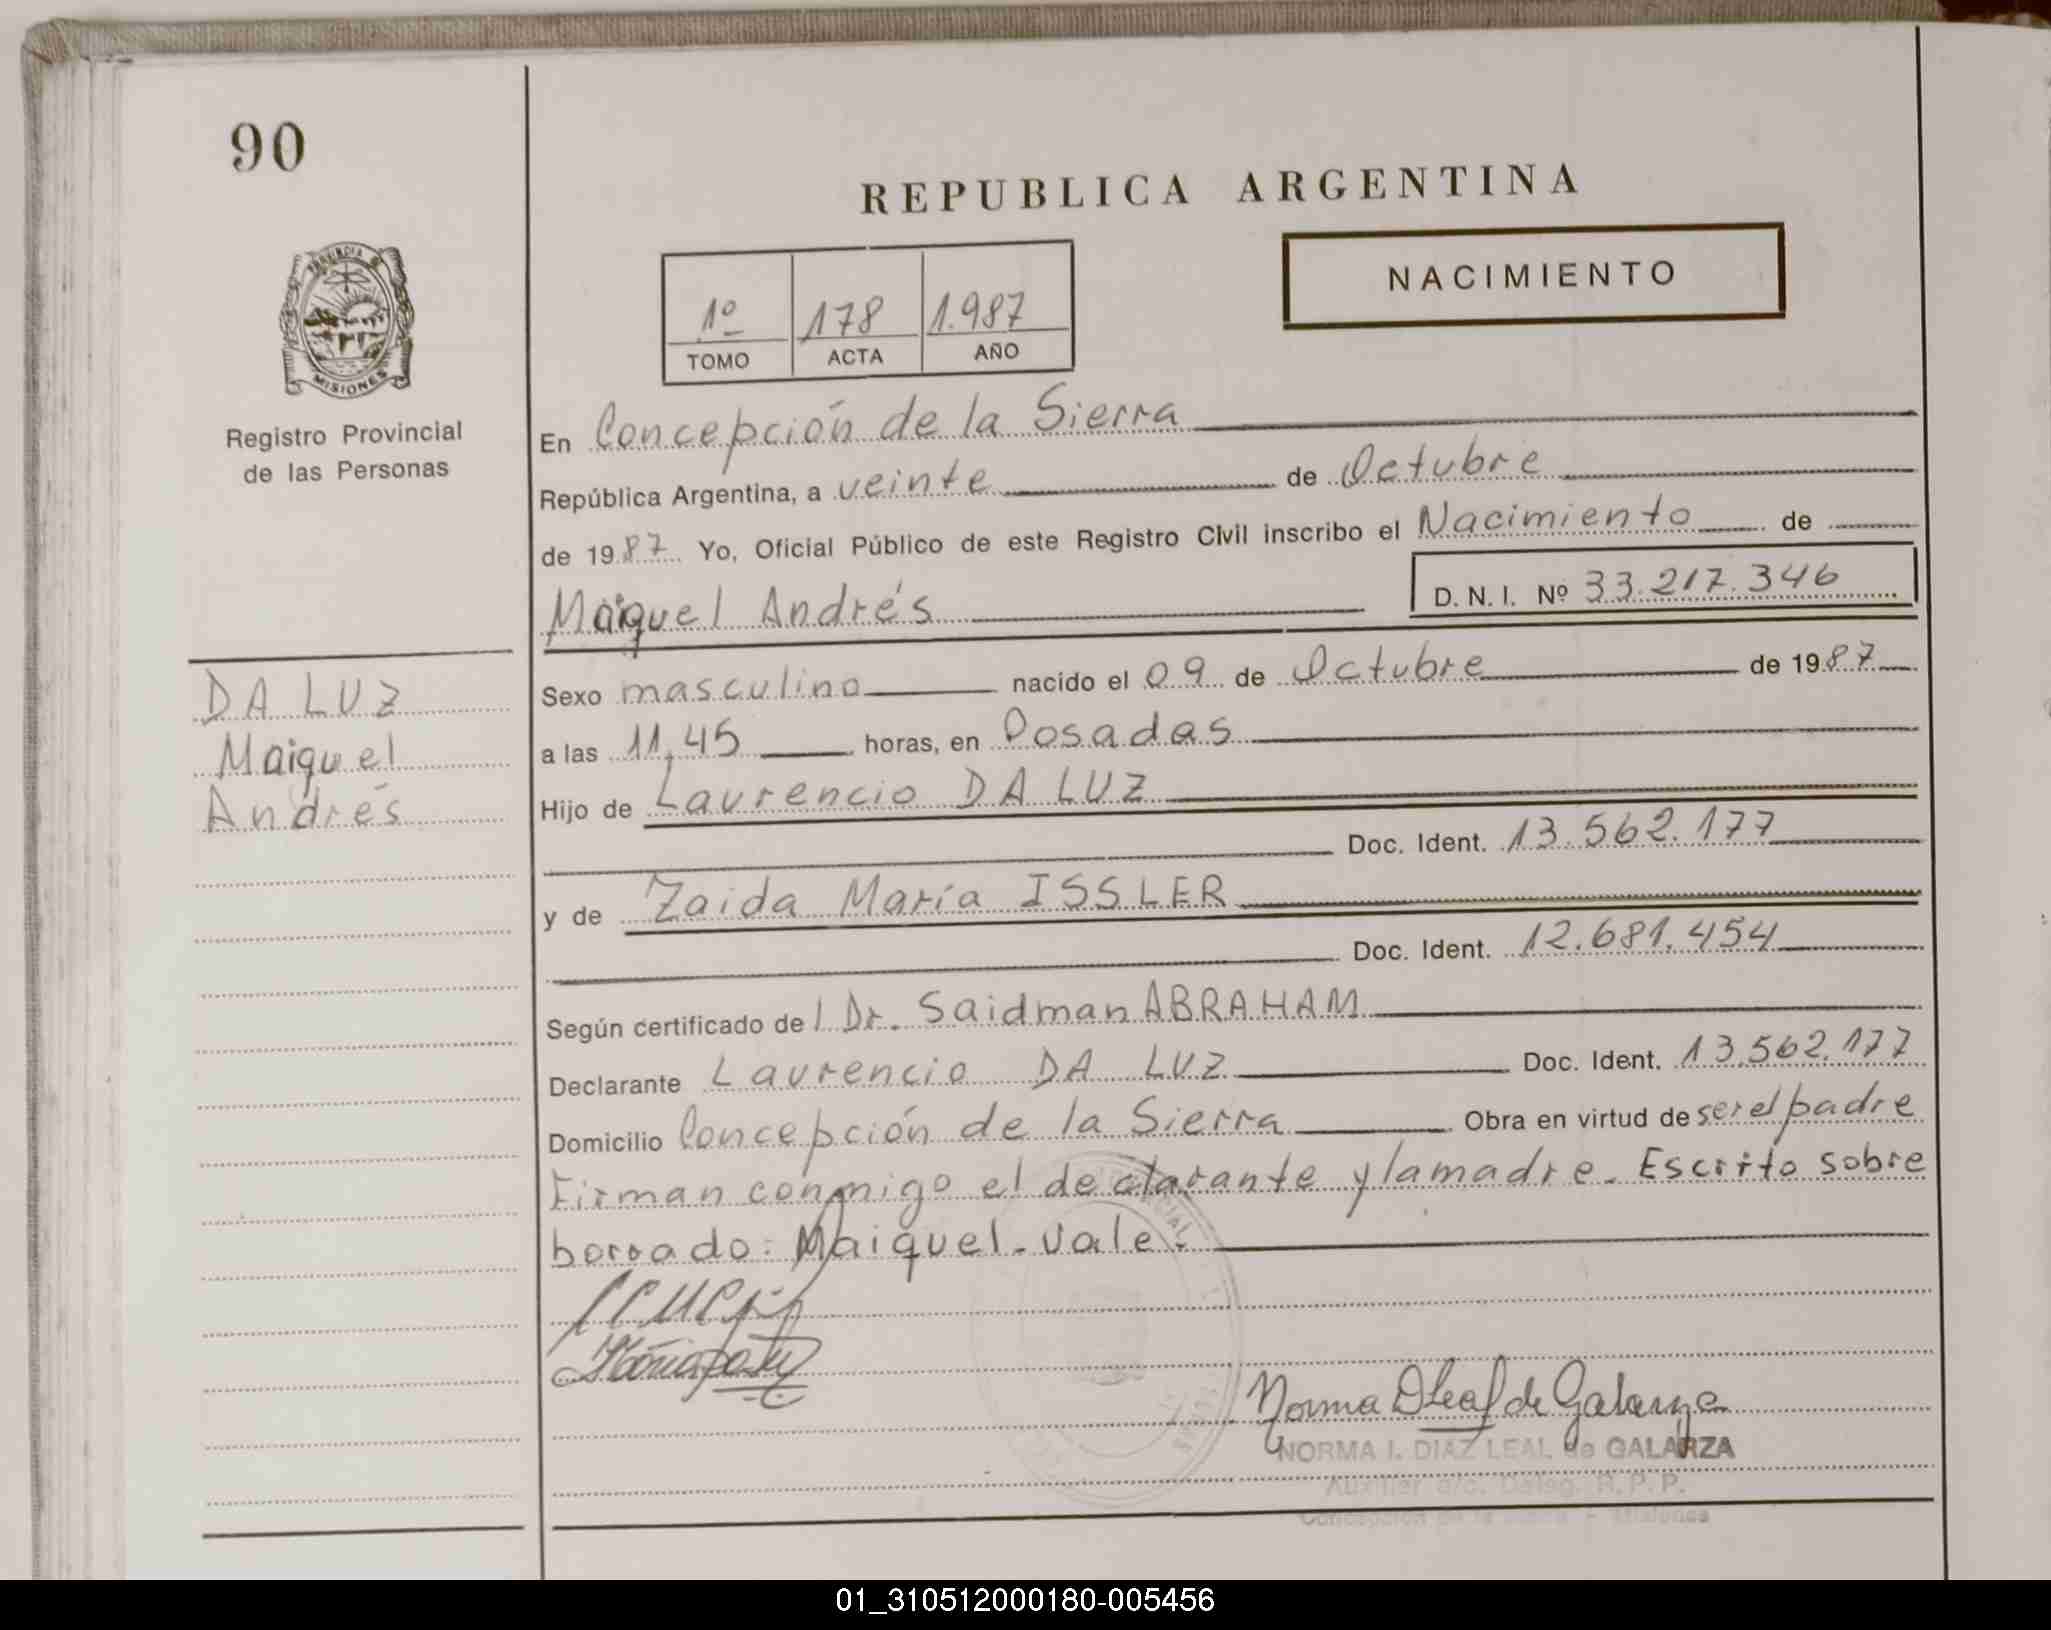 90
REPUBLICA ARGENTINA
NACIMIENTO
1º 178 1.987
TOMO ACTA AÑO
PROVINCIA DE
MISIONES
Registro Provincial
de las Personas
En Concepción de la Sierra
República Argentina, a veinte de Octubre
de 1987 Yo, Oficial Público de este Registro Civil inscribo el Nacimiento de
Maiquel Andrés D. N. I. Nº 33.217.346
DA LUZ
Maiquel
Andrés
Sexo masculino nacido el 09 de Octubre de 1987
a las 11,45 horas, en Posadas
Hijo de Laurencio DA LUZ
Doc. Ident. 13.562.177
y de Zaida María ISSLER
Doc. Ident. 12.681.454
Según certificado del Dr. Saidman ABRAHAM
Declarante Laurencio DA LUZ Doc. Ident. 13.562.177
Domicilio Concepción de la Sierra Obra en virtud de ser el padre
Firman conmigo el declarante y la madre. Escrito sobre
borrado: Maiquel. Vale.
Norma DLeal de Galarza
NORMA I. DIAZ LEAL de GALARZA
Auxiliar a/c. Deleg. R. P. P.
Concepción de la Sierra - Misiones
01_310512000180-005456